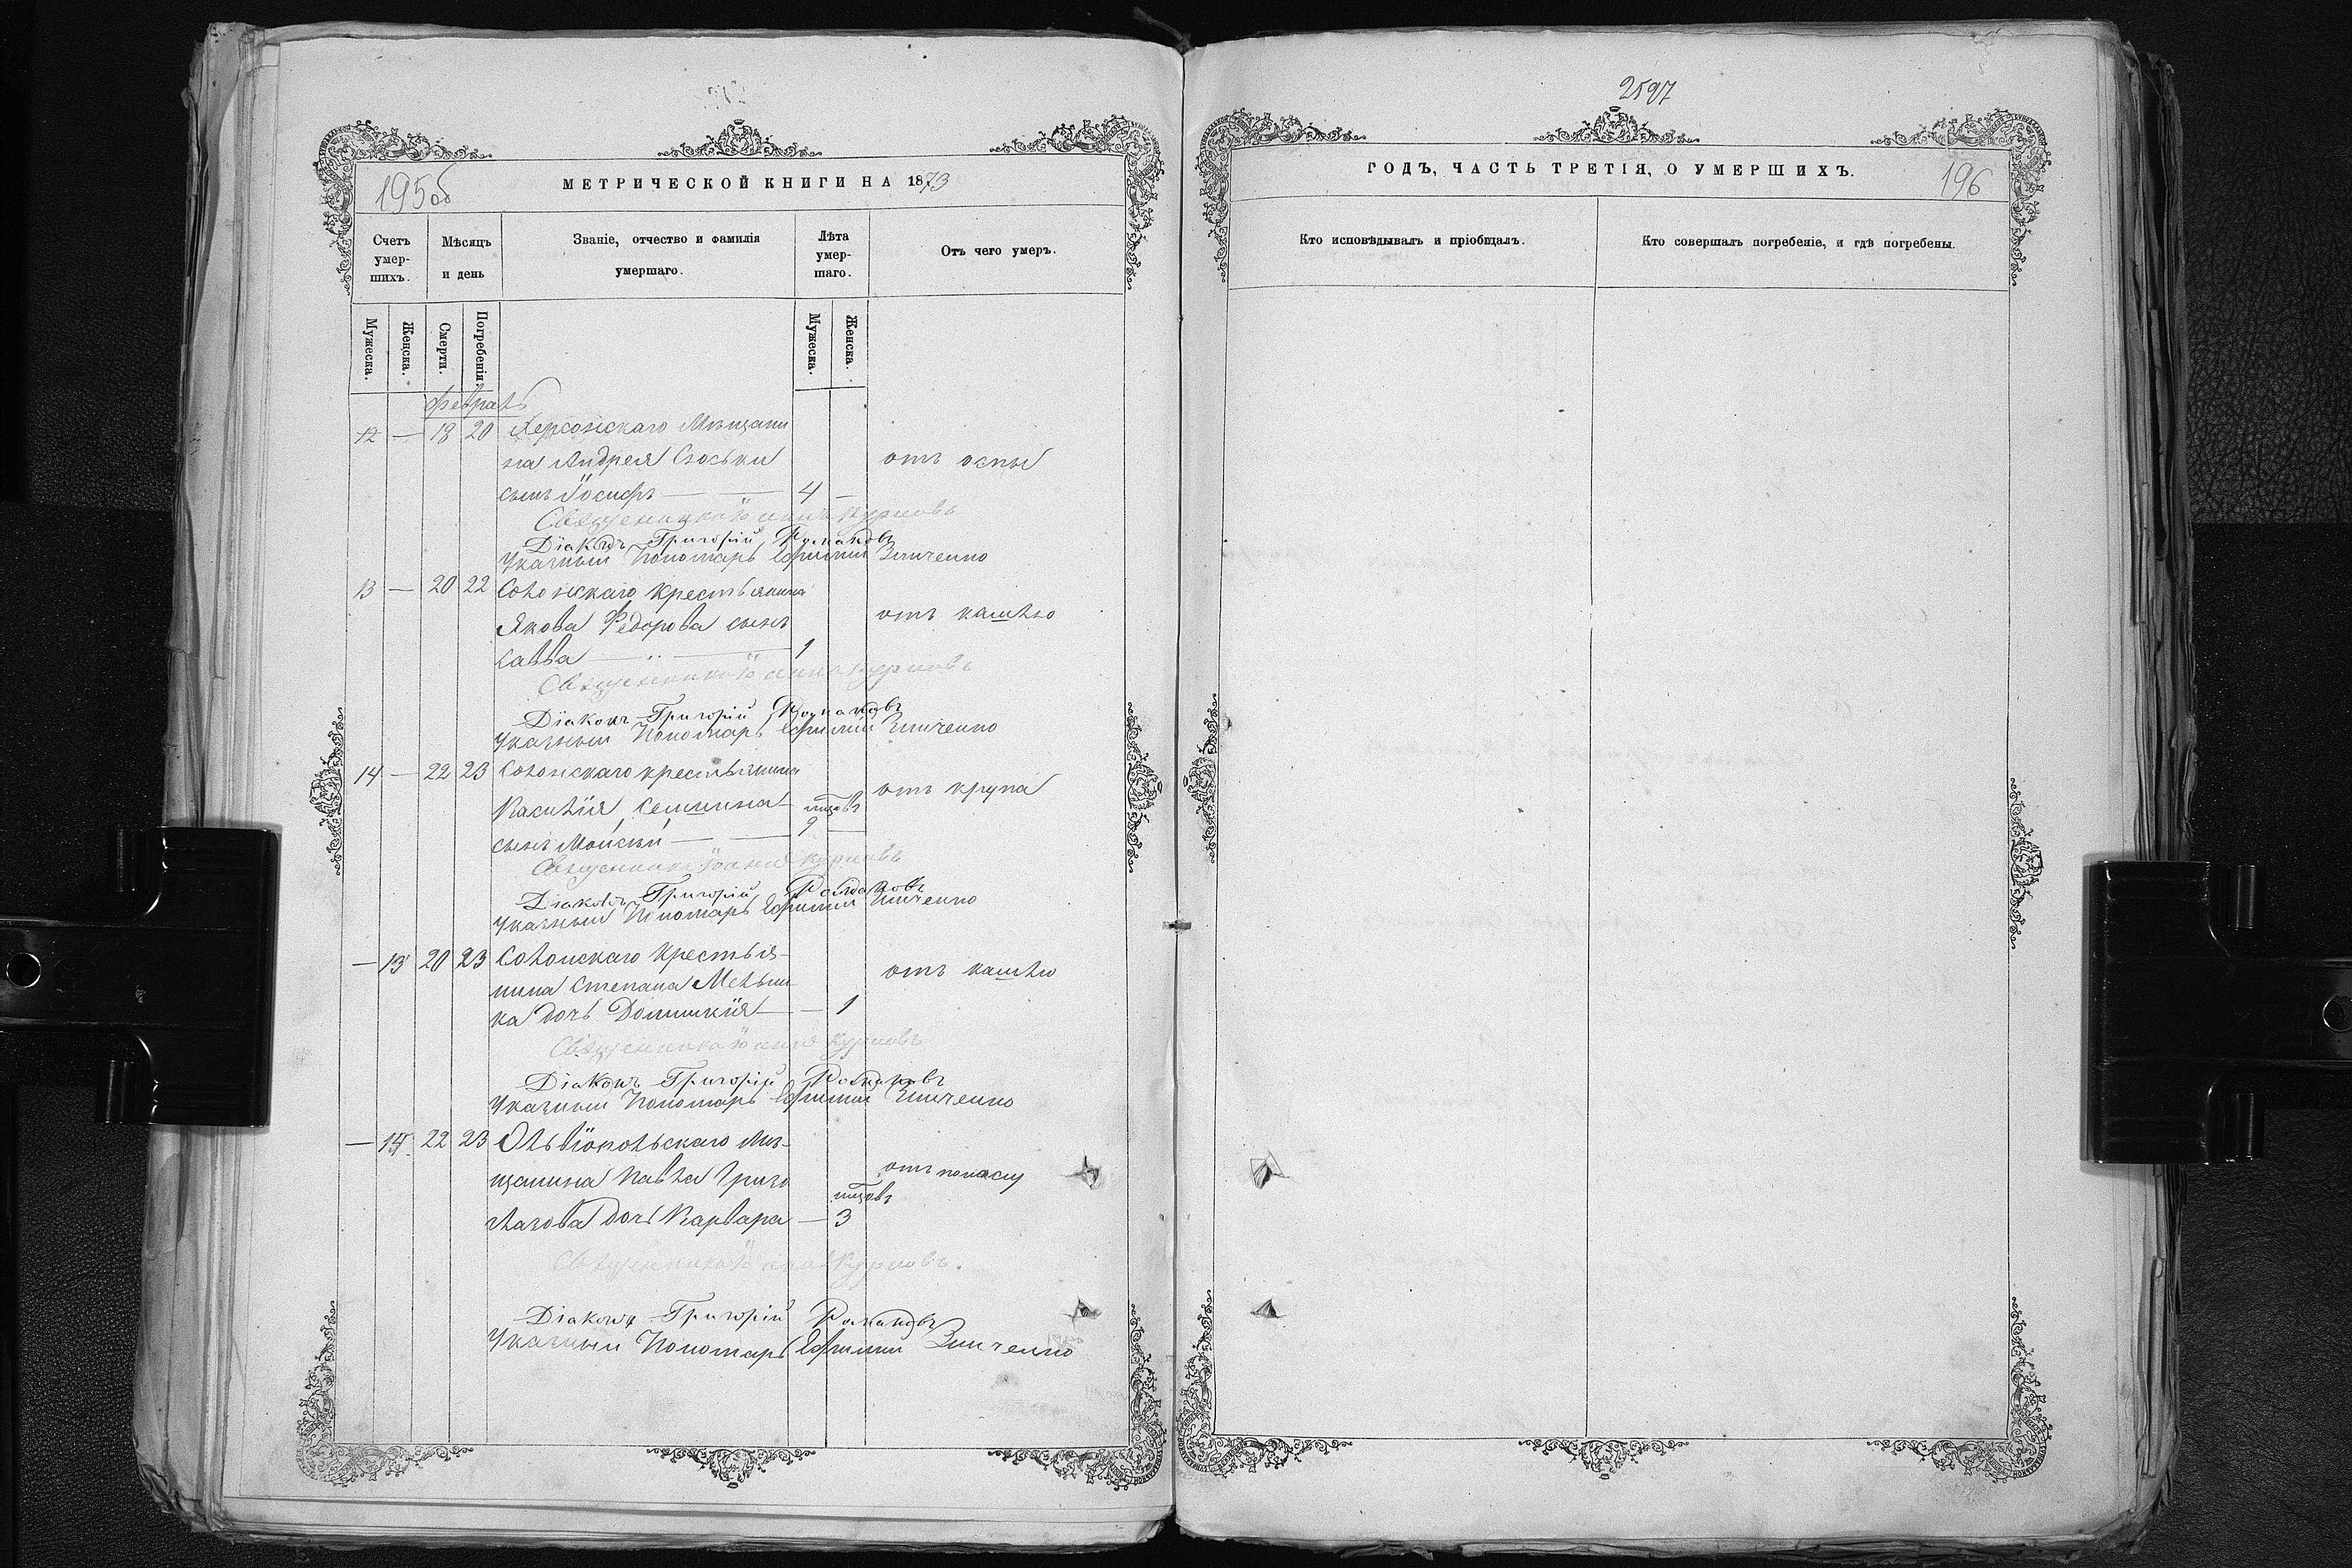 195об
МЕТРИЧЕСКОЙ КНИГИ НА 1873
Счетъ умер-шихъ. Мѣсяцъ и день Званіе, отчество и фамилія умершаго. Лѣта умер-шаго. Отъ чего умеръ.
Мужеска. Женска. Смерти. Погребенія. Мужеска. Женска.
Февраль
12 — 18 20 Херсонскаго Мѣщани
на Андрея Сюськи отъ оспы
сынъ Іосифъ — — 4 —
Священникъ Іоаннъ Курловъ
Діаконъ Григорій Романовъ
Указный Пономарь Ефимий Зинченко
13 — 20 22 Солонскаго крестьянина
Якова Федорова сынъ отъ кашлю
Савва — — 1
Священникъ Іоаннъ Курловъ
Діаконъ Григорій Романовъ
Указный Пономарь Ефимий Зинченко
14 — 22 23 Солонскаго крестьянина
Василія Семина отъ крупа
мцовъ
сынъ Мойсѣй — — 9 —
Священникъ Іоаннъ Курловъ
Діаконъ Григорій Романовъ
Указный Пономарь Ефимий Зинченко
— 13 20 23 Солонскаго Крестья-
нина Степана Мельни отъ кашлю
ка дочь Домникія — — 1
Священникъ Іоаннъ Курловъ
Діаконъ Григорій Романовъ
Указный Пономарь Ефимий Зинченко
— 14 22 23 Ольвіопольскаго Мѣ-
щанина Павла Григо отъ поносу
мцовъ
дочь Варвара — 3
Священникъ Іоаннъ Курловъ.
Діаконъ Григорій Романовъ
Указный Пономарь Ефимий Зинченко
2597
ГОДЪ, ЧАСТЬ ТРЕТІЯ, О УМЕРШИХЪ.
196
Кто исповѣдывалъ и пріобщалъ. Кто совершалъ погребеніе, и гдѣ погребены.